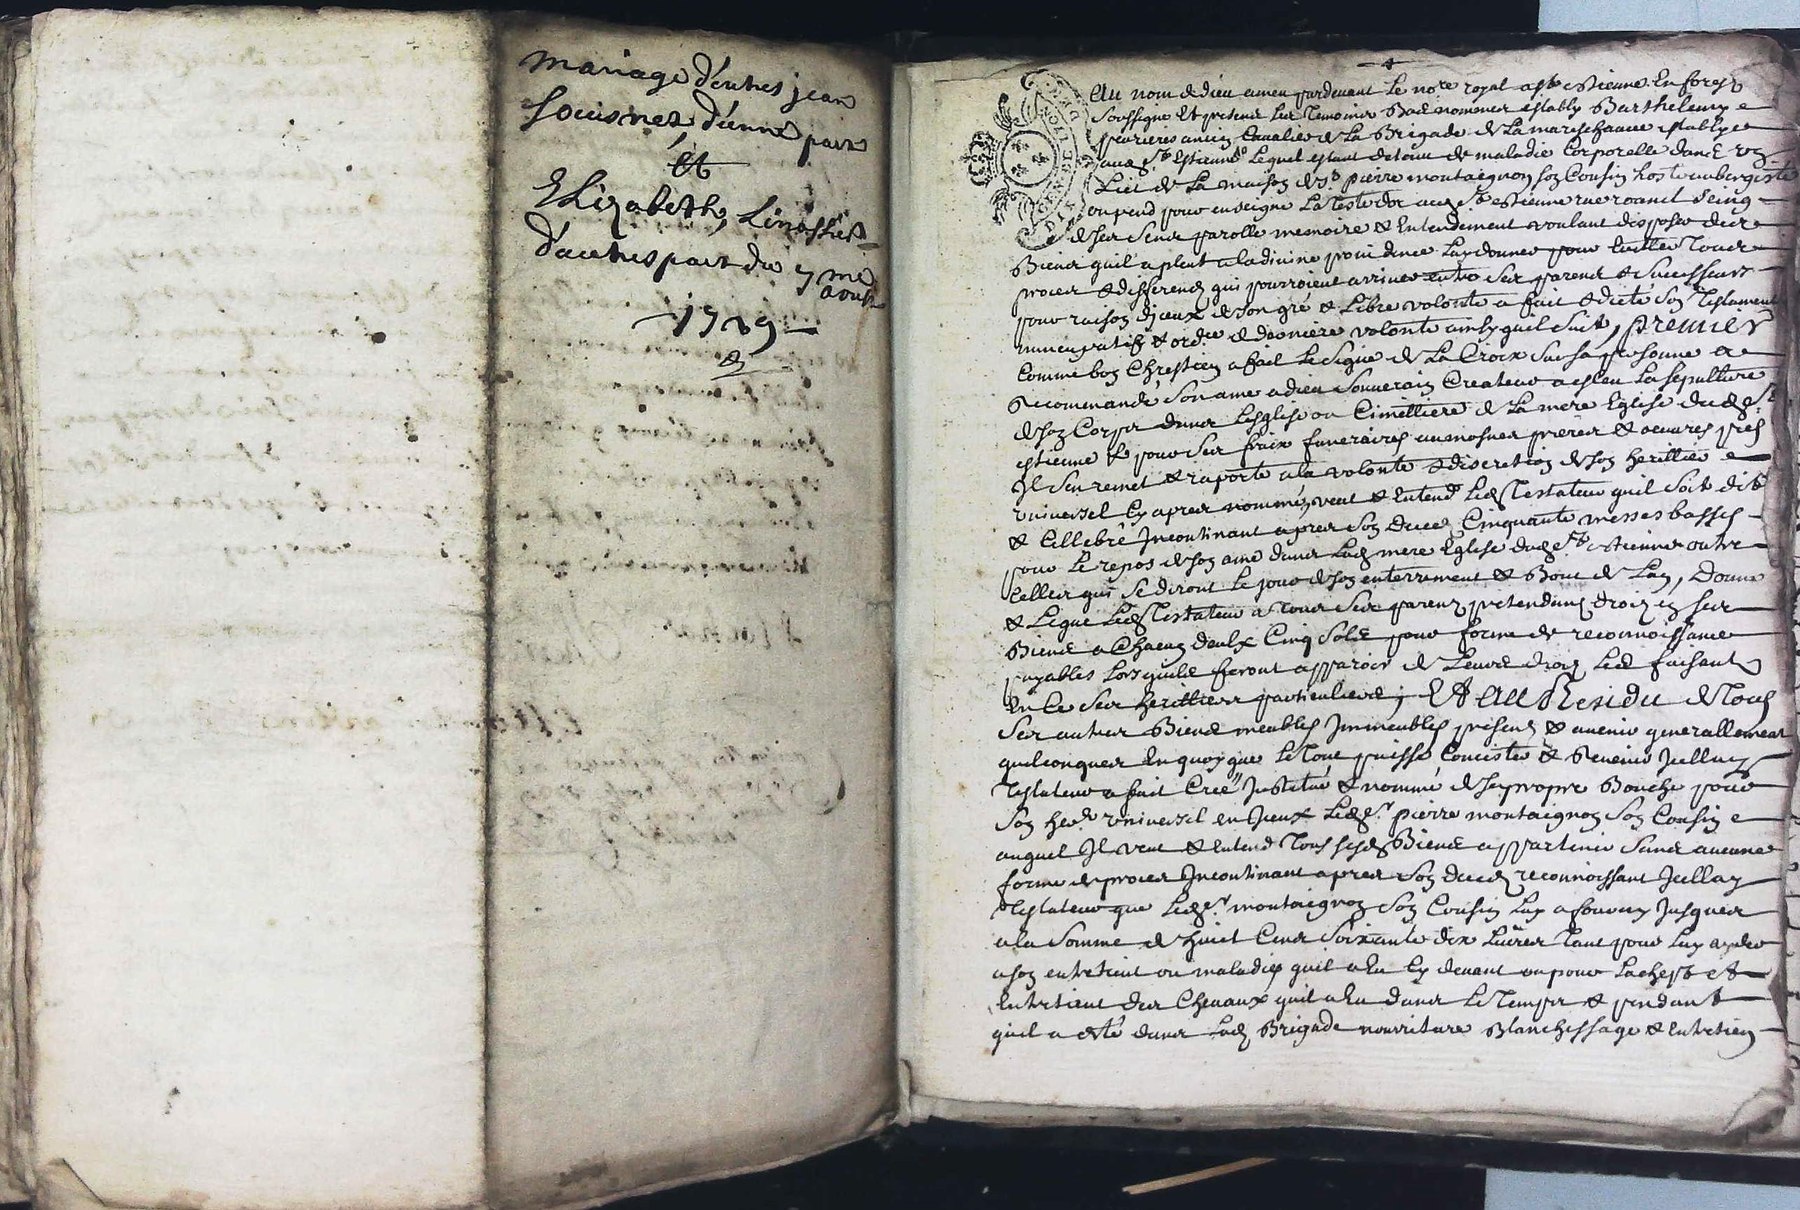 mariage d'entres jean
d'eunne part
et
Elizabeth,
d'autres part du 7 me
aoust
1729
Au nom de dieu amen pardevant Le no.re royal a st estienne En forest
Soussigné Et presens Les Temoins Bas nommes estably Barthelemy
ancien Cavalier de La Brigade de La mareschaucee establye
aud st Estienne Lequel estant detenu de maladie Corporelle dans un
Lict de La maison de sr pierre montaignon son Cousin hoste aubergiste
ou pend pour enseigne La Teste d'or aud st estienne rue roanel Seing
de ses Sens parolle memoire & Entendement voulant disposer des
Biens quil a pleut a la divine providence Luy donner pour Eviter Tous
proces & differends qui pourroient arriver entre Ses parens & Successeurs
pour raison d'jceux de son gré & Libre volonté a fait & dicté Son Testament
nuncupatif & ordre de derniere volonté ainsy quil Suit, premier
Comme bon Chrestien a fait Le Signe de La Croix Sur sa personne &
Recommandé Son ame a dieu Souverain Createur a esleu La Sepulture
de son Corps dans Lesglise ou Cimettiere de La mere Eglise dud st
estienne & pour Ses fraix funeraires aumosnes prieres & oeuvres pies
Il Sen remet & raporte a la volonté & discretion de son heritier
universel Cy apres nommé, veut & Entend Led Testateur quil Soit dit
& Cellebré Incontinant apres Son deced Cinquante messes basses
pour Le repos de son ame dans Lad mere Eglise dud st estienne outre
Celles qui Se diront Le jour de son enterrement & Bout de L'an, Donne
& Legue Led Testateur a Tous Ses parens pretendans droit en Ses
Biens a Chacun d'eulx Cinq Sols pour forme de reconnoissance
payables Lors quils feront apparoir de Leurs droits Les faisant
En Ce Ses heritiers particuliers, Et Au Residu de Tous
Ses autres Biens meubles Immeubles presens & avenir generallement
quelconques En quoy que Le Tout puisse Concister & Revenir Jcelluy
Testateur a fait Creé Institué & nommé de sa propre Bouche pour
Son her. universel en Jceux Led sr pierre montaignon Son Cousin
auquel Il veut & Entend Tous sesd Biens appartenir Sans aucune
forme de proces Incontinant apres Son deced reconnoissant Jcelluy
Testateur que Led sr montaignon Son Cousin Luy a fourny Jusques
a la Somme de huict Cens Soixante dix Livres Tant pour Luy ayder
a son entretient ou maladies quil a Eu Cy devant ou pour Lachept et
Entretient des Chevaux quil a Eu dans Le Temps & pendant
quil a esté dans Lad Brigade nourriture Blanchissage & Entretien